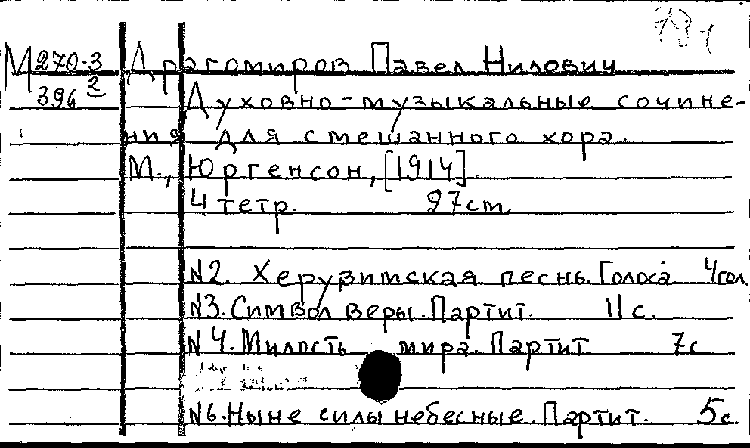 М 270-3 Драгомиров Павел Нилович
396 2 Духовно-музыкальные сочине-
ния для смешанного хора.
М., Юргенсон, [1914].
4 тетр. 27 cm
N2. Херувимская песнь. Голоса 4 гол.
N3. Символ веры. Партит. 11 с.
N4. Милость мира. Партит 7с
N6. Ныне силы небесные. Партит. 5с.